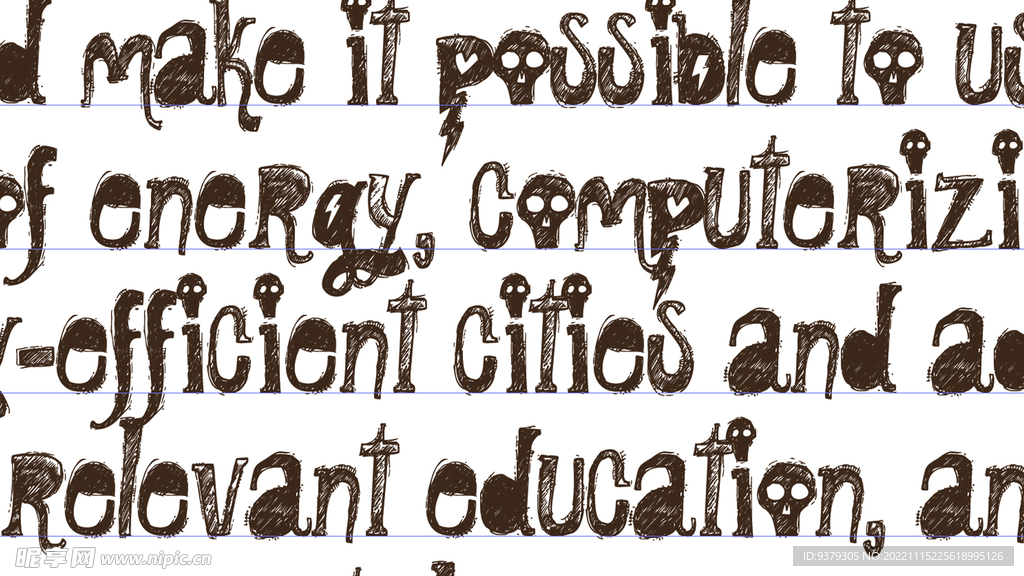 d make it possible to us
of energy, computerizi
y-efficient cities and ad
relevant education, an
昵享网 www.nipic.cn
ID:9379305 NO:20221115225618995126